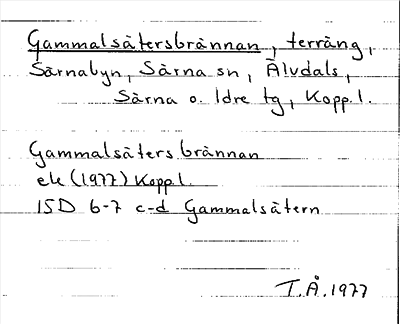 Gammalsätersbrännan, terräng,
Särnabyn, Särna sn, Älvdals,
Särna o. Idre tg, Kopp. l.
Gammalsäters brännan
ek (1977) Kopp. l.
15D 6-7 c-d Gammalsätern
T.Å. 1977